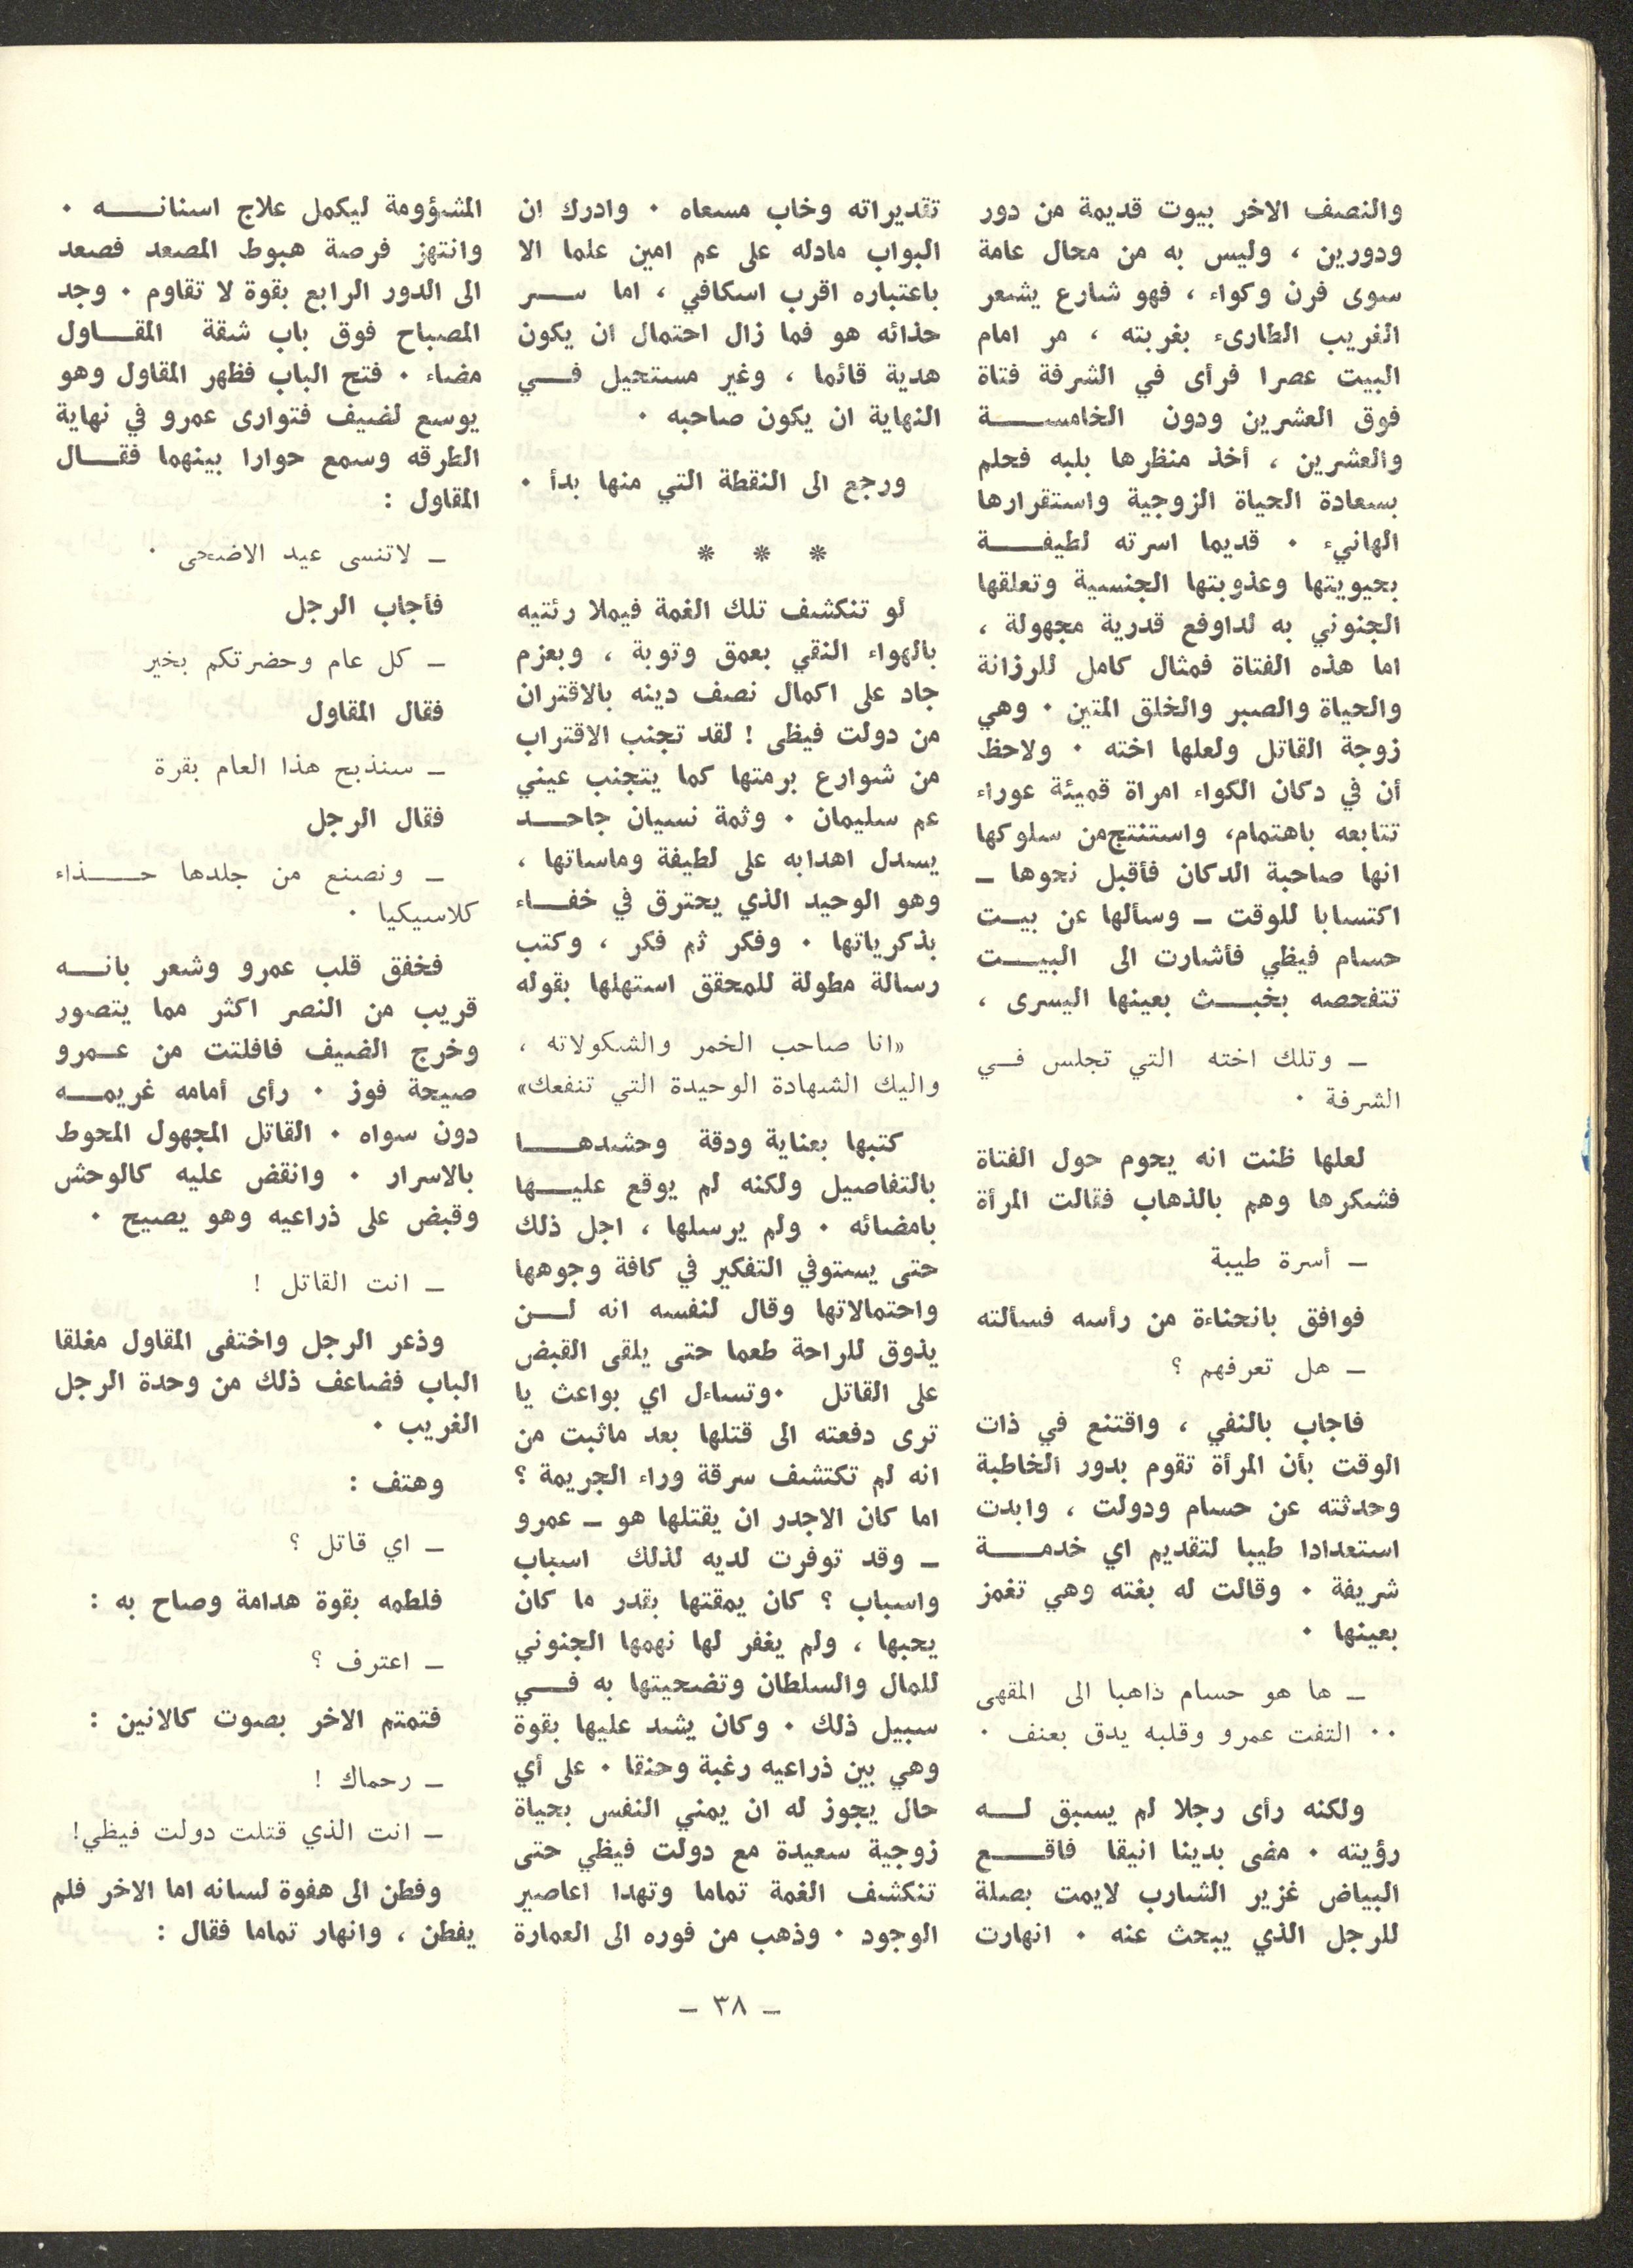 والنصف الاخر بيوت قديمة من دور
ودورين ، وليس به من محال عامة
سوى فرن وكواء ، فهو شارع يشعر
الغريب الطارىء بغربته ، مر امام
البيت عصرا فرأى في الشرفة فتاة
فوق العشرين ودون الخامسة
والعشرين ، أخذ منظرها بلبه فحلم
بسعادة الحياة الزوجية واستقرارها
الهانيء . قديما اسرته لطيفة
بحيويتها وعذوبتها الجنسية وتعلقها
الجنوني به لداوفع قدرية مجهولة ،
اما هذه الفتاة فمثال كامل للرزانة
والحياة والصبر والخلق المتين . وهي
زوجة القاتل ولعلها اخته . ولاحظ
أن في دكان الكواء امراة قميئة عوراء
تتابعه باهتمام، واستنتج من سلوكها
انها صاحبة الدكان فأقبل نحوها ـ
اكتسابا للوقت ـ وسألها عن بيت
حسام فيظي فأشارت الى البيت
تتفحصه بخبث بعينها اليسرى ،
ـ وتلك اخته التي تجلس في
الشرفة .
لعلها ظنت انه يحوم حول الفتاة
فشكرها وهم بالذهاب فقالت المرأة
ـ أسرة طيبة
فوافق بانحناءة من رأسه فسألته
ـ هل تعرفهم ؟
فاجاب بالنفي ، واقتنع في ذات
الوقت بأن المرأة تقوم بدور الخاطبة
وحدثته عن حسام ودولت ، وابدت
استعدادا طيبا لتقديم اي خدمة
شريفة . وقالت له بغته وهي تغمز
بعينها .
ـ ها هو حسام ذاهبا الى المقهى
.. التفت عمرو وقلبه يدق بعنف .
ولكنه رأى رجلا لم يسبق له
رؤيته . مضى بدينا انيقا فاقع
البياض غزير الشارب لايمت بصلة
للرجل الذي يبحث عنه . انهارت
تقديراته وخاب مسعاه . وادرك ان
البواب مادله على عم امين علما الا
باعتباره اقرب اسكافي ، اما سر
حذائه هو فما زال احتمال ان يكون
هدية قائما ، وغير مستحيل في
النهاية ان يكون صاحبه .
ورجع الى النقطة التي منها بدأ .
* * *
لو تنكشف تلك الغمة فيملا رئتيه
بالهواء النقي بعمق وتوبة ، وبعزم
جاد على اكمال نصف دينه بالاقتران
من دولت فيظى ! لقد تجنب الاقتراب
من شوارع برمتها كما يتجنب عيني
عم سليمان . وثمة نسيان جاحد
يسدل اهدابه على لطيفة وماساتها ،
وهو الوحيد الذي يحترق في خفاء
بذكرياتها . وفكر ثم فكر ، وكتب
رسالة مطولة للمحقق استهلها بقوله
«انا صاحب الخمر والشكولاته ،
واليك الشهادة الوحيدة التي تنفعك»
كتبها بعناية ودقة وحشدها
بالتفاصيل ولكنه لم يوقع عليها
بامضائه . ولم يرسلها ، اجل ذلك
حتى يستوفي التفكير في كافة وجوهها
واحتمالاتها وقال لنفسه انه لن
يذوق للراحة طعما حتى يلقى القبض
على القاتل .وتساءل اي بواعث يا
ترى دفعته الى قتلها بعد ماثبت من
انه لم تكتشف سرقة وراء الجريمة ؟
اما كان الاجدر ان يقتلها هو ـ عمرو
ـ وقد توفرت لديه لذلك اسباب
واسباب ؟ كان يمقتها بقدر ما كان
يحبها ، ولم يغفر لها نهمها الجنوني
للمال والسلطان وتضحيتها به في
سبيل ذلك . وكان يشد عليها بقوة
وهي بين ذراعيه رغبة وحنقا . على أي
حال يجوز له ان يمني النفس بحياة
زوجية سعيدة مع دولت فيظي حتى
تنكشف الغمة تماما وتهدا اعاصير
الوجود . وذهب من فوره الى العمارة
المشؤومة ليكمل علاج اسنانه .
وانتهز فرصة هبوط المصعد فصعد
الى الدور الرابع بقوة لا تقاوم . وجد
المصباح فوق باب شقة المقاول
مضاء . فتح الباب فظهر المقاول وهو
يوسع لضيف فتوارى عمرو في نهاية
الطرقه وسمع حوارا بينهما فقال
المقاول :
ـ لاتنسى عيد الاضحى .
فأجاب الرجل
ـ كل عام وحضرتكم بخير
فقال المقاول
ـ سنذبح هذا العام بقرة
فقال الرجل
ـ ونصنع من جلدها حذاء
كلاسيكيا .
فخفق قلب عمرو وشعر بانه
قريب من النصر اكثر مما يتصور
وخرج الضيف فافلتت من عمرو
صيحة فوز . رأى أمامه غريمه
دون سواه . القاتل المجهول المحوط
بالاسرار . وانقض عليه كالوحش
وقبض على ذراعيه وهو يصيح .
ـ انت القاتل !
وذعر الرجل واختفى المقاول مغلقا
الباب فضاعف ذلك من وحدة الرجل
الغريب .
وهتف :
ـ اي قاتل ؟
فلطمه بقوة هدامة وصاح به :
ـ اعترف ؟
فتمتم الاخر بصوت كالانين :
ـ رحماك !
ـ انت الذي قتلت دولت فيظي!
وفطن الى هفوة لسانه اما الاخر فلم
يفطن ، وانهار تماما فقال :
ـ ٣٨ ـ